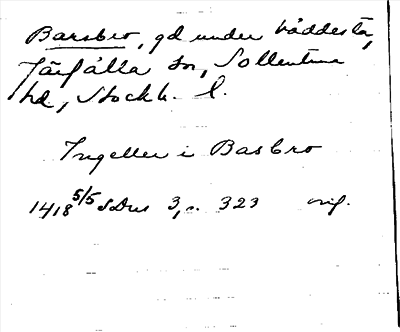 Barsbro, gd under Väddesta,
Järfälla sn, Sollentuna
hd, Stockh. l.
Ingeller i Basbro
1418 5/5 SDns 3, s. 323 orig.